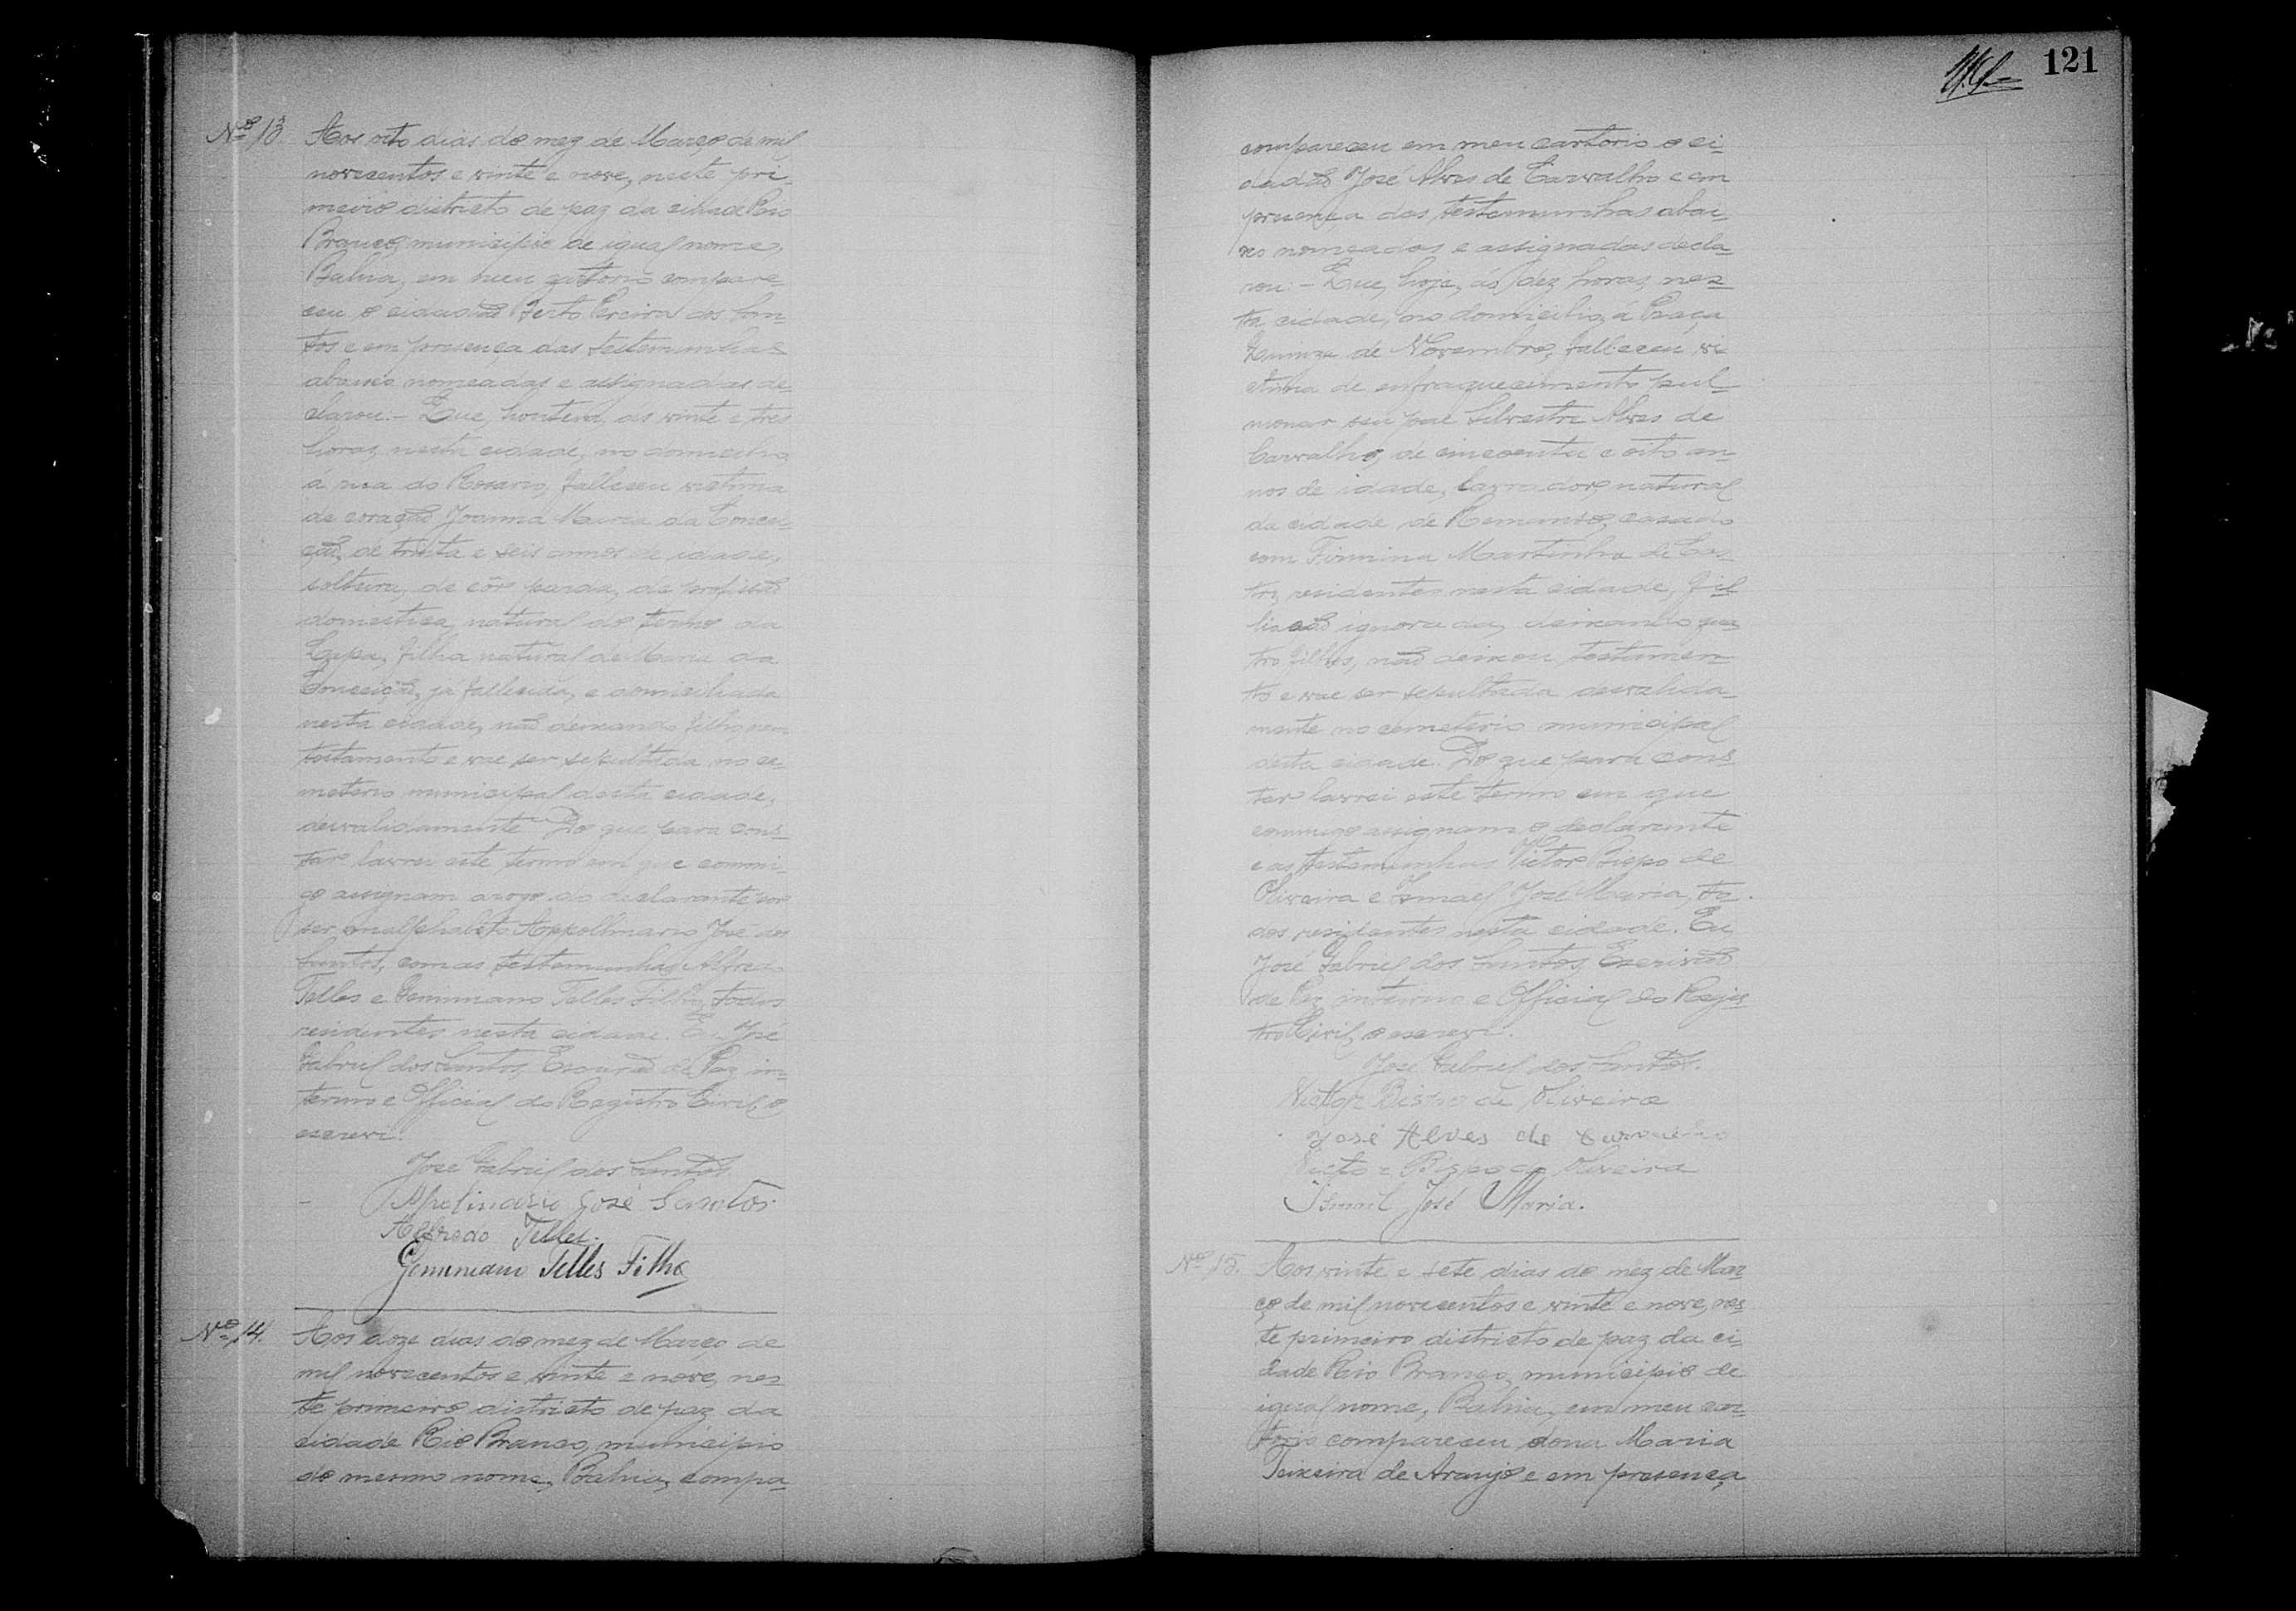 121
Nº 13. Aos oito dias do mez de Março de mil
novecentos e vinte e nove, neste pri-
meiro districto de paz da cidade Rio
Branco, municipio de igual nome,
Bahia, em meu cartorio compare-
ceu o cidadão Pereira dos San-
tos e em presença das testemunhas
abaixo nomeadas e assignadas de-
clarou: - Que, hontem, as vinte e tres
horas, nesta cidade, no domicilio
á rua do Rosario, falleceu victima
de coração Joanna Maria da Concei-
ção, de trinta e seis annos de idade,
solteira, de côr parda, de profissão
domestica, natural do termo da
Lapa, filha natural de Maria da
Conceição, já fallecida, e domiciliada
nesta cidade, não deixando filho nem
testamento e vae ser sepultada no ce-
miterio municipal desta cidade,
desvalidamente. Do que para cons-
tar lavrei este termo em que commi-
go assignam a rogo do declarante por
ser analphabeto Appollinario José dos
Santos, com as testemunhas Alfredo
Telles e Geminiano Telles Filho, todos
residentes nesta cidade. Eu José
Gabriel dos Santos, Escrivão de Paz in-
terino e Official do Registro Civil, o
escrevi.
José Gabriel dos Santos
Apolinario José Santos
Alfredo Telles.
Geminiano Telles Filho
Nº 14. Aos doze dias do mez de Março de
mil novecentos e vinte e nove, nes-
te primeiro districto de paz da
cidade Rio Branco, municipio
do mesmo nome, Bahia, compa-
compareceu em meu cartorio o ci-
dadão José Alves de Carvalho e em
presença das testemunhas abai-
xo nomeadas e assignadas decla-
rou: - Que, hoje, ás dez horas, nes-
ta cidade, no domicilio, á Praça
Quinze de Novembro, falleceu vi-
ctima de enfraquecimento pul-
monar seu pae Silvestre Alves de
Carvalho, de cincoenta e oito an-
nos de idade, lavrador, natural
da cidade de Remanso, casado
com Firmina Martinha de Cas-
tro, residentes nesta cidade, fil-
liação ignorada, deixando qua-
tro filhos, não deixou testamen-
to e vae ser sepultada desvalida-
mente no cemeterio municipal
desta cidade. Do que para cons-
tar lavrei este termo em que
commigo assignam o declarante
e as testemunhas Victor Bispo de
Oliveira e Ismael José Maria, to-
dos residentes nesta cidade. Eu
José Gabriel dos Santos, Escrivão
de Paz interino e Official do Regis-
tro Civil, o escrevi.
José Gabriel dos Santos.
Victor Bispo de Oliveira
José Alves de Carvalho
Victor Bispo de Oliveira
Ismail José Maria.
Nº 15. Aos vinte e sete dias do mez de Mar-
ço de mil novecentos e vinte e nove, nes-
te primeiro districto de paz da ci-
dade Rio Branco, municipio de
igual nome, Bahia, em meu car-
torio compareceu dona Maria
Teixeira de Araujo e em presença